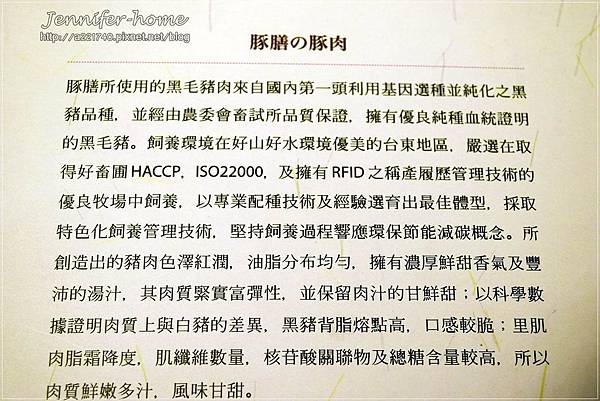 Jennifer-home
http://a221740.pixnet.net/blog
豚膳の豚肉
豚膳所使用的黑毛豬肉來自國內第一頭利用基因選種並純化之黑
豬品種，並經由農委會畜試所品質保證，擁有優良純種血統證明
的黑毛豬。飼養環境在好山好水環境優美的台東地區，嚴選在取
得好畜圃HACCP，ISO22000，及擁有RFID之稱產履歷管理技術的
優良牧場中飼養，以專業配種技術及經驗選育出最佳體型，採取
特色化飼養管理技術，堅持飼養過程響應環保節能減碳概念。所
創造出的豬肉色澤紅潤，油脂分布均勻，擁有濃厚鮮甜香氣及豐
沛的湯汁，其肉質緊實富彈性，並保留肉汁的甘鮮甜；以科學數
據證明肉質上與白豬的差異，黑豬背脂熔點高，口感較脆；里肌
肉脂霜降度，肌纖維數量，核苷酸關聯物及總糖含量較高，所以
肉質鮮嫩多汁，風味甘甜。